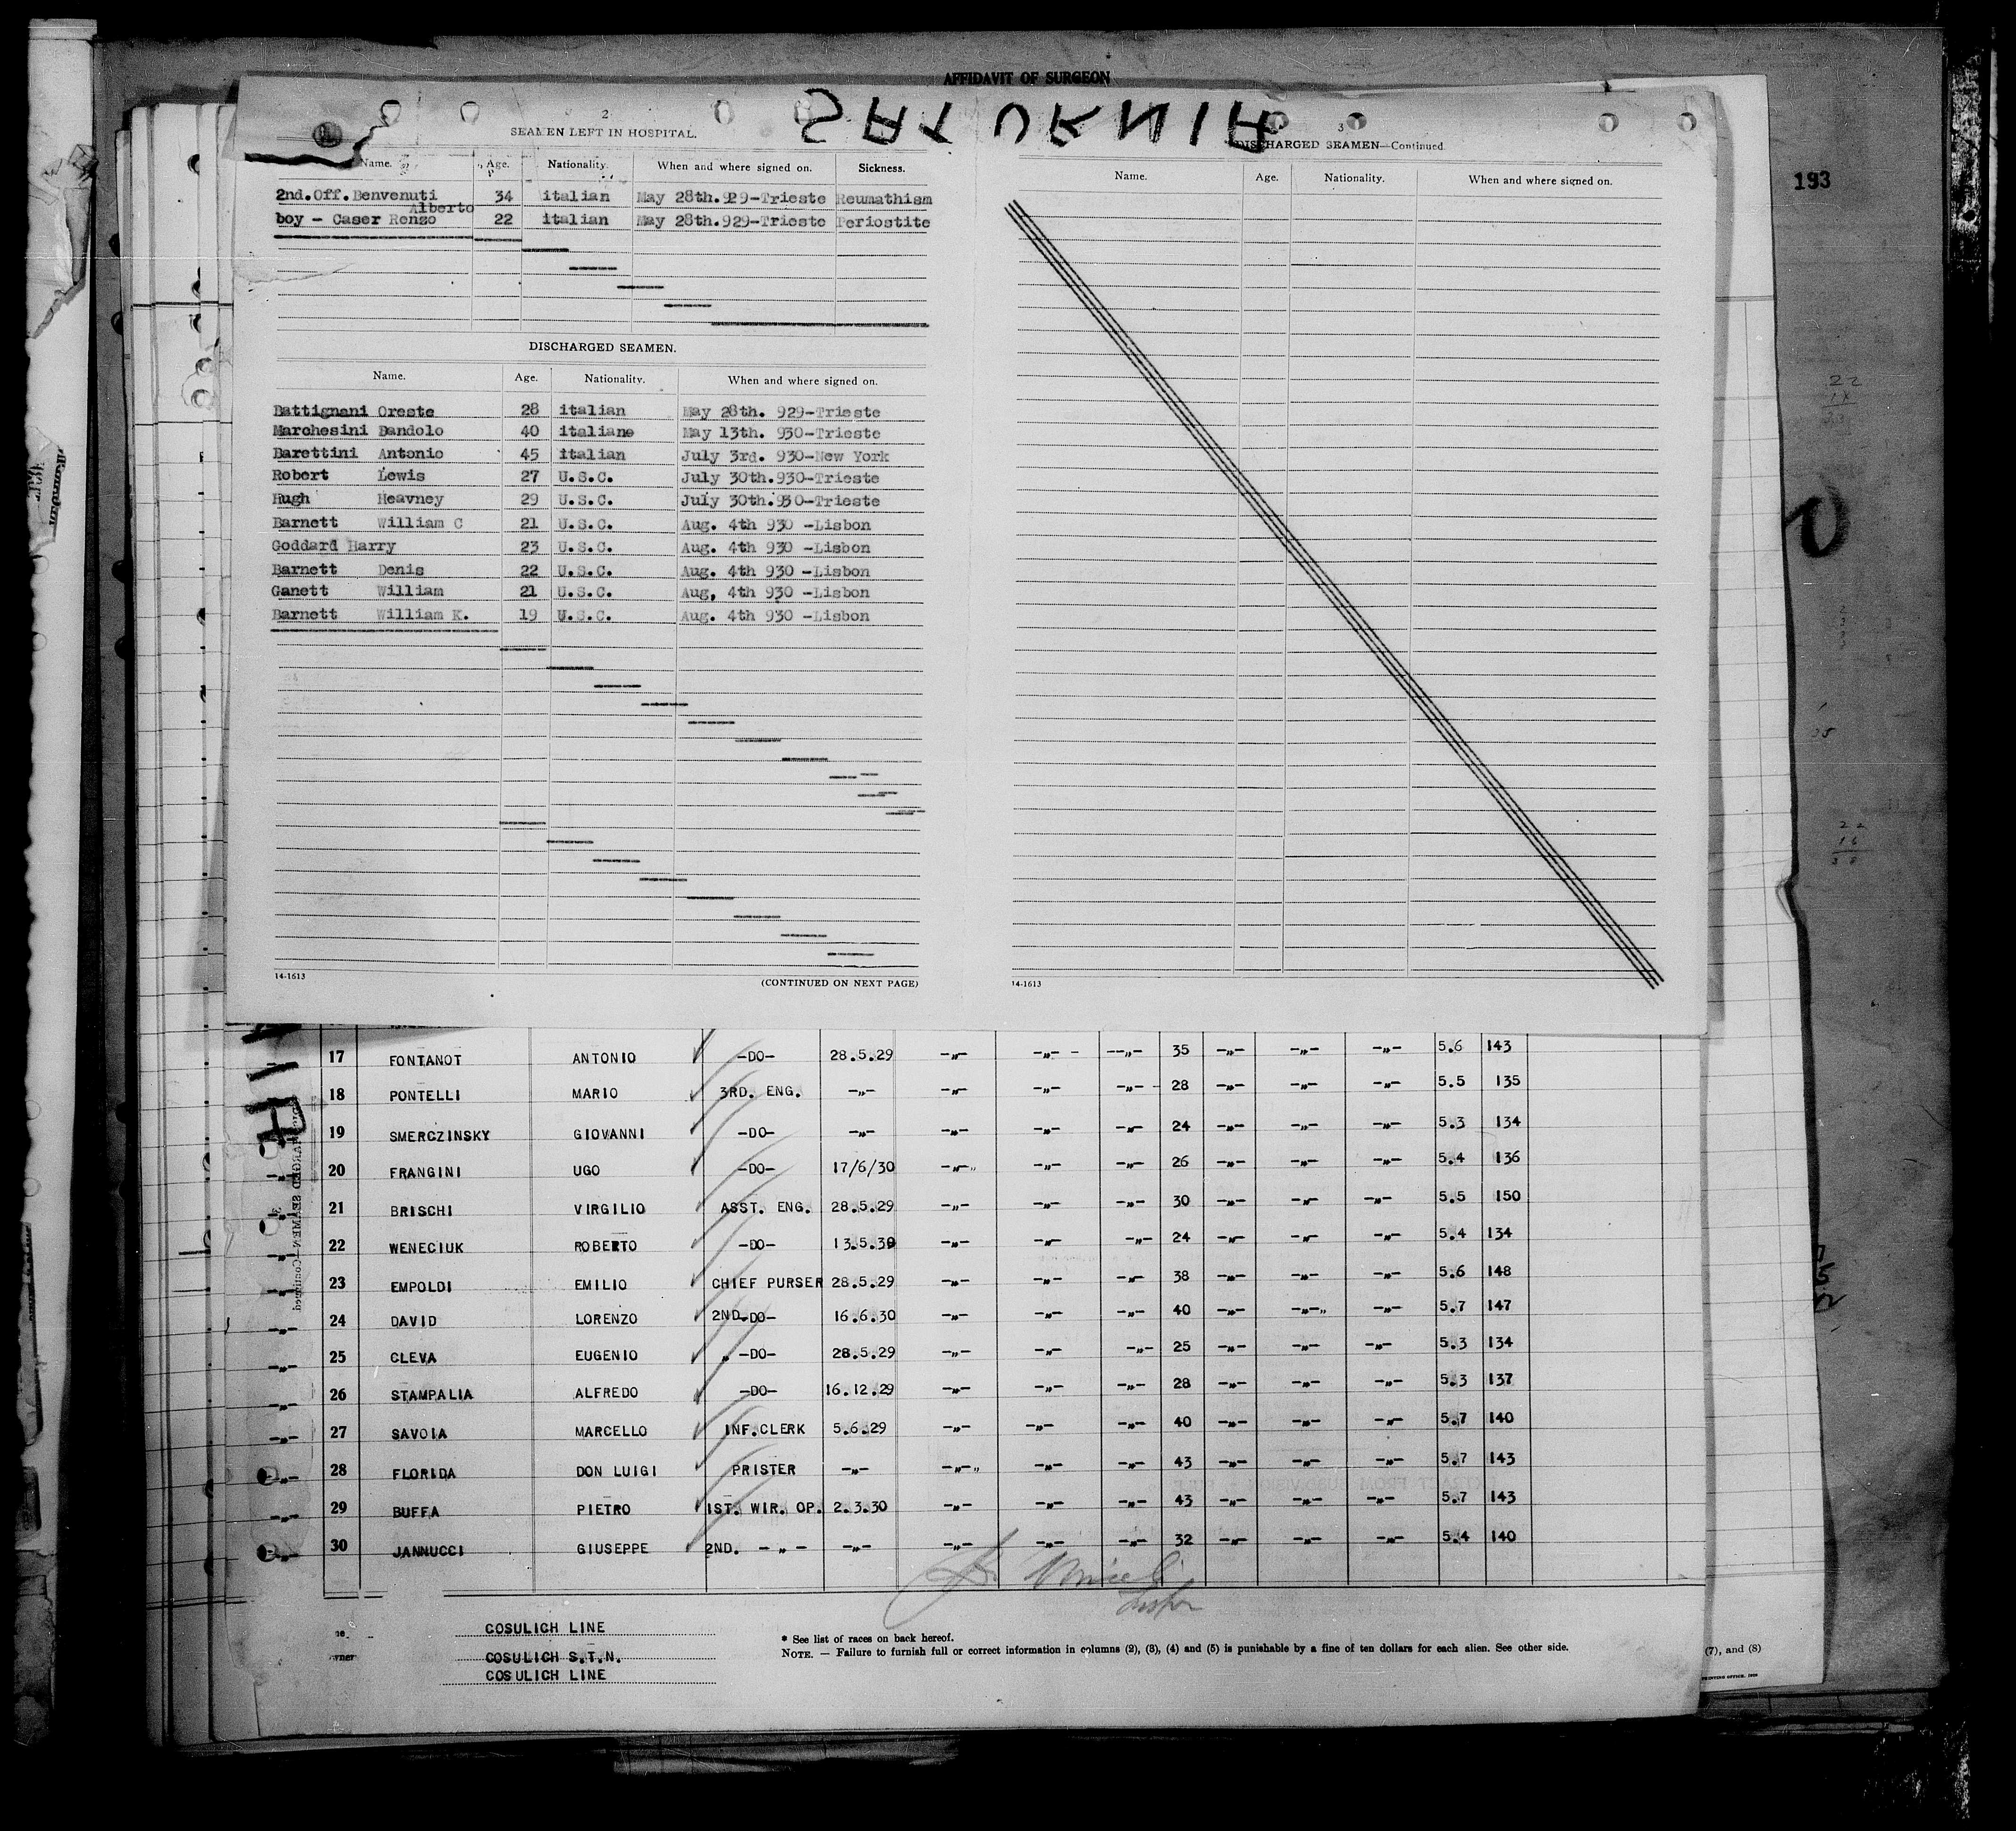 AFFIDAVIT OF SURGEON
SATURNIA
193
2
SEAMEN LEFT IN HOSPITAL.
Name. Age. Nationality. When and where signed on. Sickness.
2nd.Off.Benvenuti Alberto 34 italian May 28th.929-Trieste Reumathism
boy - Caser Renzo 22 italian May 28th.929-Trieste Periostite
DISCHARGED SEAMEN.
Name. Age. Nationality. When and where signed on.
Battignani Oreste 28 italian May 28th. 929-Trieste
Marchesini Dandolo 40 italiane May 13th. 930-Trieste
Barettini Antonio 45 italian July 3rd. 930-New York
Robert Lewis 27 U.S.C. July 30th.930-Trieste
Hugh Heavney 29 U.S.C. July 30th.930-Trieste
Barnett William C 21 U.S.C. Aug. 4th 930 -Lisbon
Goddard Harry 23 U.S.C. Aug. 4th 930 -Lisbon
Barnett Denis 22 U.S.C. Aug. 4th 930 -Lisbon
Ganett William 21 U.S.C. Aug, 4th 930 -Lisbon
Barnett William K. 19 U.S.C. Aug. 4th 930 -Lisbon
14-1613 (CONTINUED ON NEXT PAGE)
3
DISCHARGED SEAMEN—Continued
Name. Age. Nationality. When and where signed on.
14-1613
17 FONTANOT ANTONIO -DO- 28.5.29 -"- -"- - --"- 35 -"- -"- -"- 5.6 143
18 PONTELLI MARIO 3RD. ENG. -"- -"- -"- -"- - 28 -"- -"- -"- 5.5 135
19 SMERCZINSKY GIOVANNI -DO- -"- -"- -"- -"- 24 -"- -"- -"- 5.3 134
20 FRANGINI UGO -DO- 17/6/30 -"-" -"- -"- 26 -"- -"- -"- 5.4 136
21 BRISCHI VIRGILIO ASST. ENG. 28.5.29 -"- -"- -"- 30 -"- -"- -"- 5.5 150
22 WENECIUK ROBERTO -DO- 13.5.30 -"- -"- -"- 24 -"- -"- -"- 5.4 134
23 EMPOLDI EMILIO CHIEF PURSER 28.5.29 -"- -"- -"- 38 -"- -"- -"- 5.6 148
24 DAVID LORENZO 2ND.-DO- 16.6.30 -"- -"- -"- 40 -"- -"-" -"- 5.7 147
25 CLEVA EUGENIO " -DO- 28.5.29 -"- -"- -"- 25 -"- -"- -"- 5.3 134
26 STAMPALIA ALFREDO -DO- 16.12.29 -"- -"- -"- 28 -"- -"- -"- 5.3 137
27 SAVOIA MARCELLO INF.CLERK 5.6.29 -"- -"- -"- 40 -"- -"- -"- 5.7 140
28 FLORIDA DON LUIGI PRISTER -"- -"-" -"- -"- 43 -"- -"- -"- 5.7 143
29 BUFFA PIETRO 1ST. WIR. OP. 2.3.30 -"- -"- -"- 43 -"- -"- -"- 5.7 143
30 JANNUCCI GIUSEPPE 2ND. - " - -"- -"- -"- -"- 32 -"- -"- -"- 5.4 140
COSULICH LINE
COSULICH S.T.N.
COSULICH LINE
* See list of races on back hereof.
NOTE. — Failure to furnish full or correct information in columns (2), (3), (4) and (5) is punishable by a fine of ten dollars for each alien. See other side.
(7), and (8)